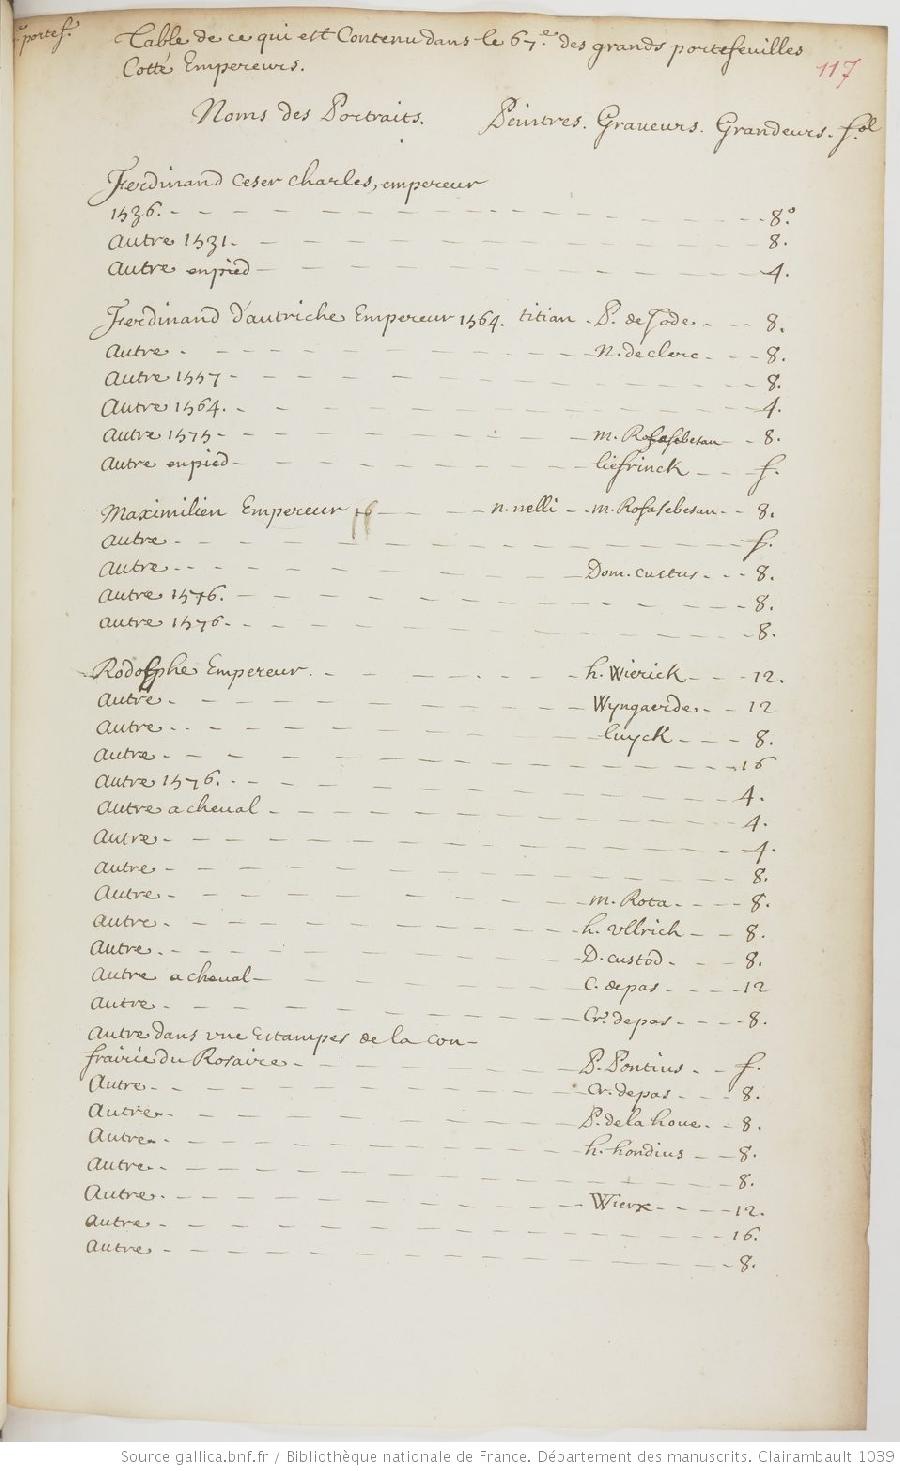 portef.
Table de ce qui est Contenu dans le 67.e des grands portefeuilles
Cotté Empereurs.
117
Noms des Portraits. Peintres. Graveurs. Grandeurs. fol
Ferdinand Ceser Charles, empereur
1536. - 8.o
Autre 1531. - 8.
Autre en pied - 4.
Ferdinand d'autriche Empereur 1564. titian - P. de Jode - 8.
Autre - n. de clerc - 8.
Autre 1557 - 8.
Autre 1564. - 4.
Autre 1575 - m. Rosasebesan - 8.
Autre en pied - liefrinck - f.
Maximilien Empereur - n. nelli - m. Rosasebesan - 8.
Autre - f.
Autre - Dom. custus - 8.
Autre 1576. - 8.
Autre 1576 - 8.
Rodolphe Empereur - h. Wierick - 12.
Autre - Wyngaerde - 12
Autre - luyck - 8.
Autre - 16
Autre 1576. - 4.
Autre a cheval - 4.
Autre - 4.
Autre - 8.
Autre - m. Rota - 8.
Autre - h. Vllrich - 8.
Autre - D. custod - 8.
Autre a cheval - C. de pas - 12
Autre - Cr. de pas - 8.
Autre dans vne Estampes de la con-
frairie du Rosaire - P. Pontius - f.
Autre - Cr. de pas - 8.
Autre - P. de la houe - 8.
Autre - h. hondius - 8.
Autre - 8.
Autre - Wierx - 12.
Autre - 16.
Autre - 8.
Source gallica.bnf.fr / Bibliothèque nationale de France. Département des manuscrits. Clairambault 1039